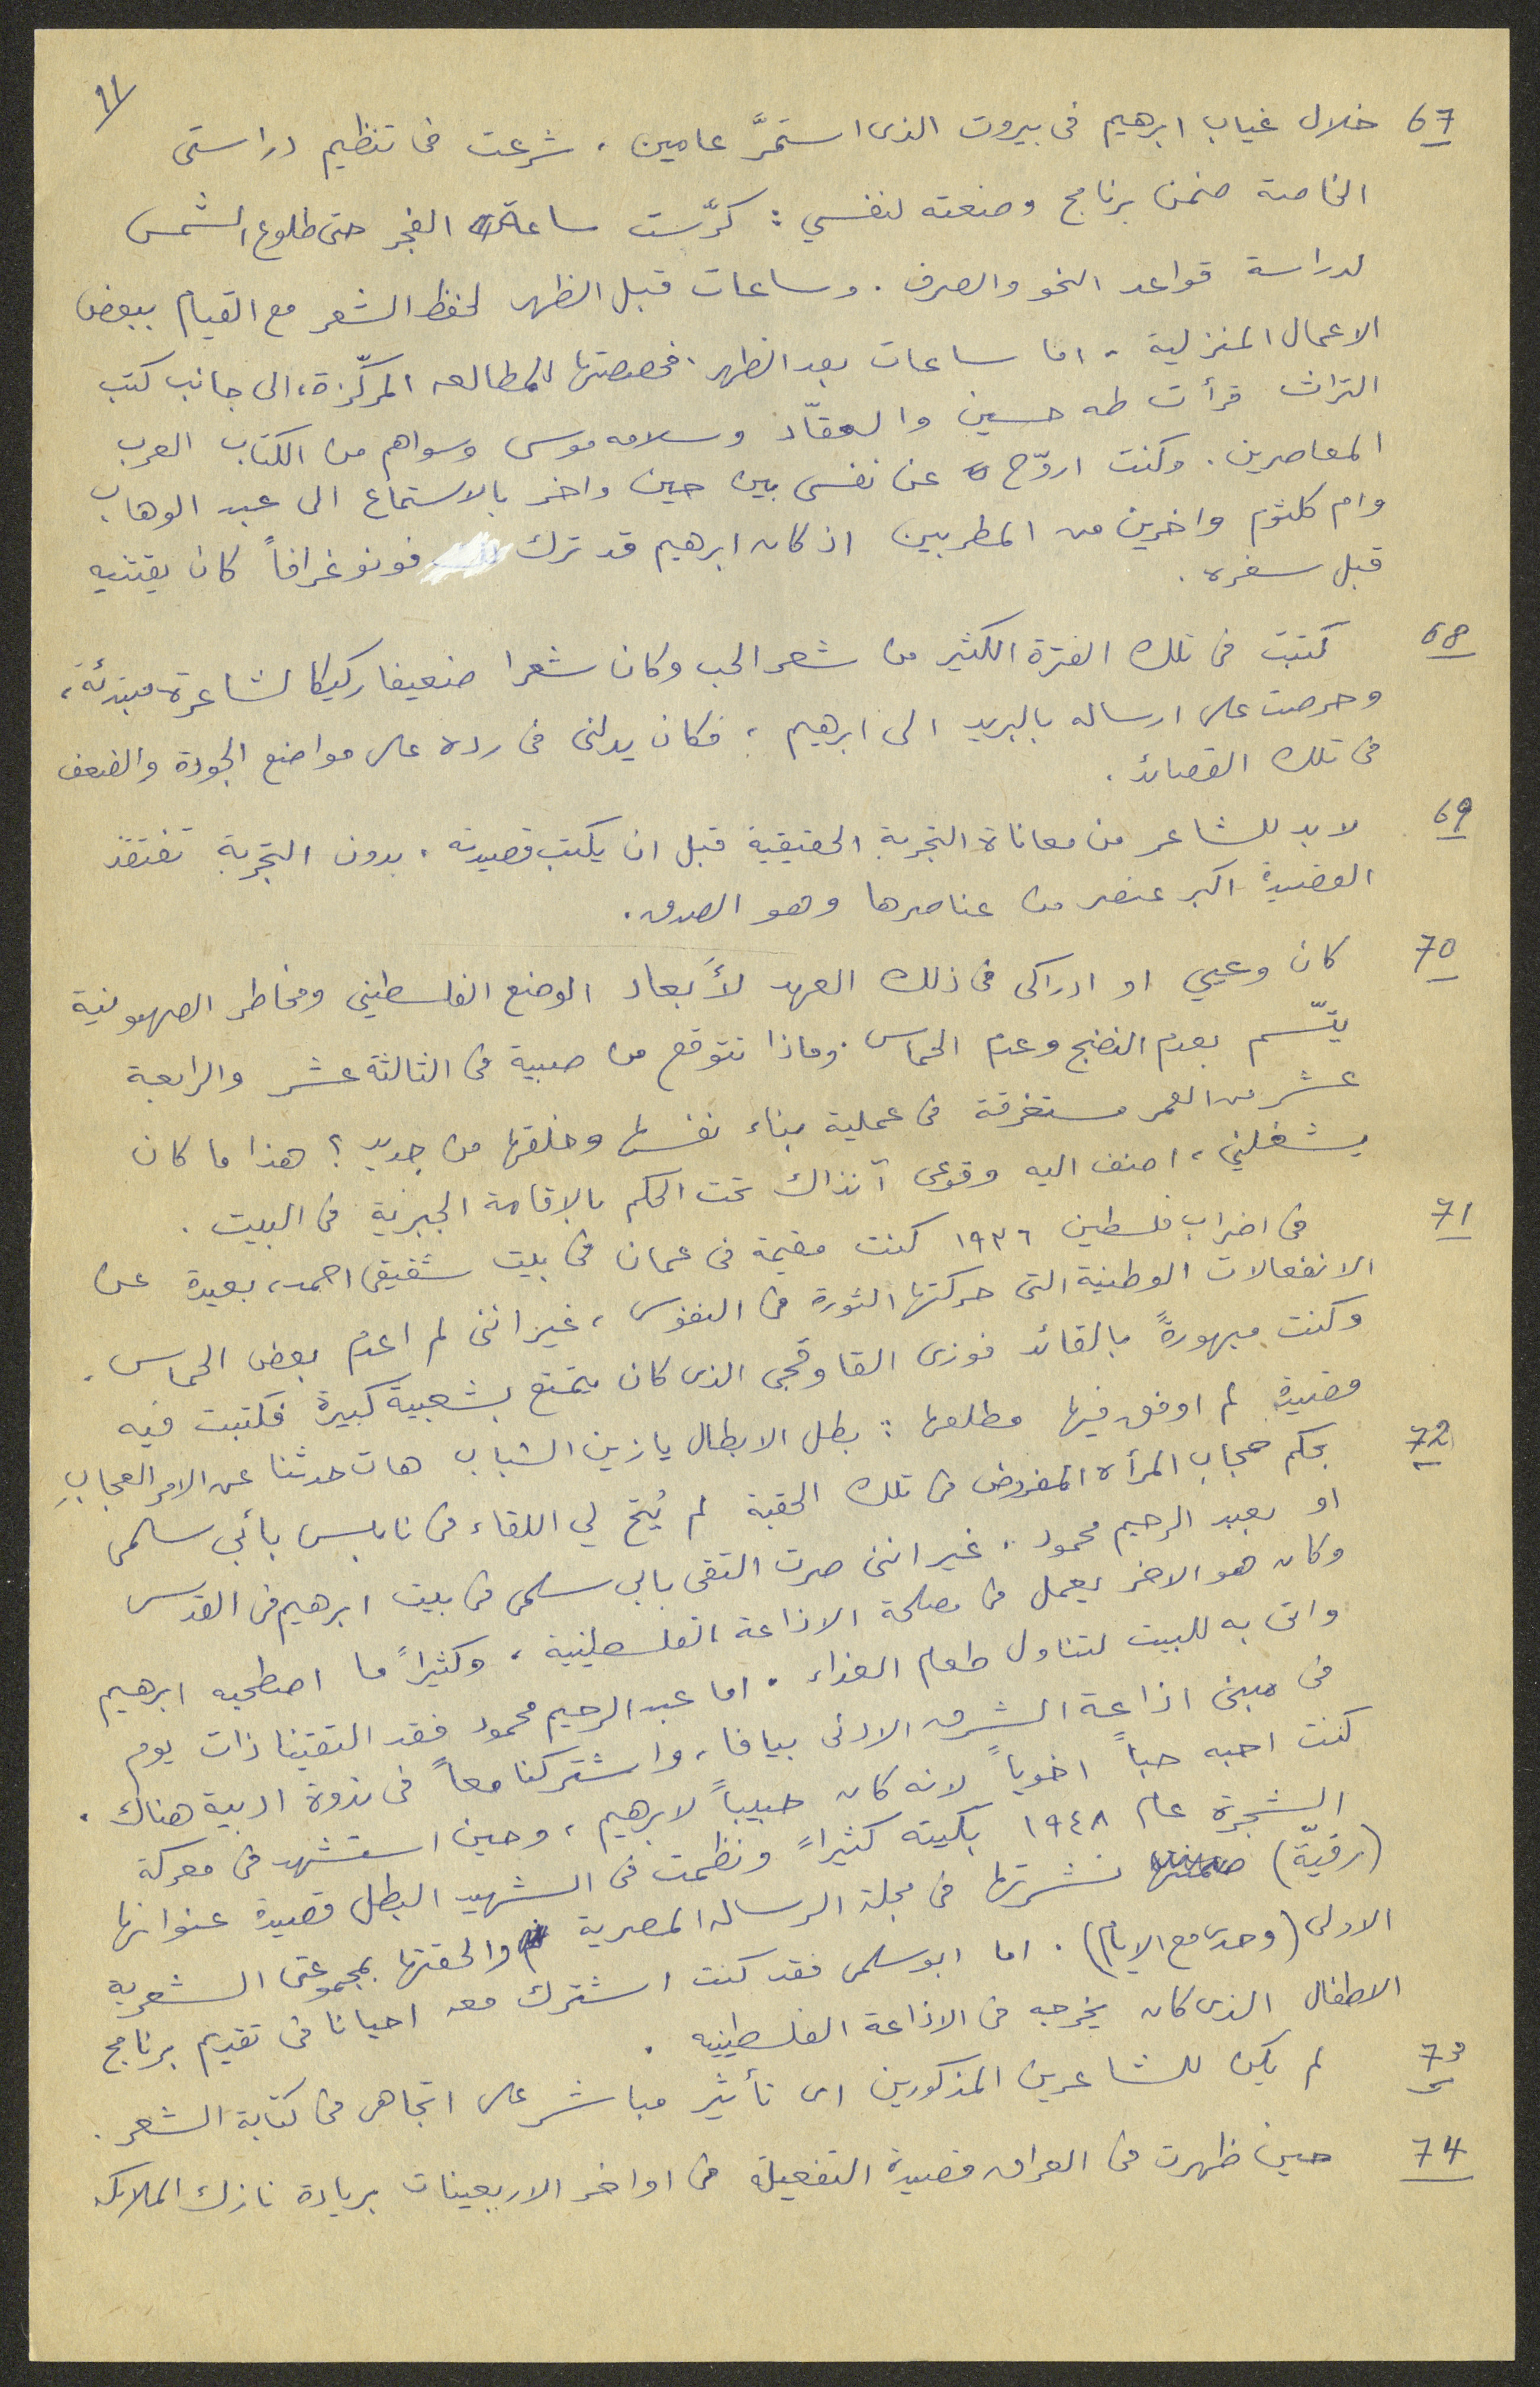 ١١/
67 خلال غياب ابرهيم في بيروت الذى استمرَّ عامين، شرعت في تنظيم دراستي
الخاصة ضمن برنامج وضعته لنفسي: كرّست ساعة الفجر حتى طلوع الشمس
لدراسة قواعد النحو والصرف. وساعات قبل الظهر لحفظ الشعر مع القيام ببعض
الاعمال المنزلية. اما ساعات بعد الظهر فخصصتها للمطالعه المركّزة، الى جانب كتب
التراث قرأت طه حسين والعقّاد وسلامه موسى وسواهم من الكتاب العرب
المعاصرين. وكنت اروّح عن نفسي بين حين واخر بالاستماع الى عبد الوهاب
وام كلثوم واخرين من المطربين اذ كان ابرهيم قد ترك فونوغرافاً كان يقتنيه
قبل سفره.
68 كتبت في تلك الفترة الكثير من شعر الحب وكان شعرا ضعيفا ركيكا لشاعرة مبتدئة،
وحرصت على ارساله بالبريد الى ابرهيم، فكان يدلنى في رده على مواضع الجودة والضعف
في تلك القصائد.
69 لا بد للشاعر من معاناة التجربة الحقيقية قبل ان يكتب قصيدته. بدون التجربة تفتقد
القصيدة اكبر عنصر من عناصرها وهو الصدق.
70 كان وعيي او ادراكى في ذلك العهد لأبعاد الوضع الفلسطيني ومخاطر الصهيونية
يتّسم بعدم النضج وعدم الحماس. وماذا نتوقع من صبية في الثالثة عشر والرابعة
عشر من العمر مستغرقة في عملية بناء نفسها وخلقها من جديد؟ هذا ما كان
يشغلني، اضف اليه وقوعى آنذاك تحت الحكم بالاقامة الجبرية في البيت.
71 في اضراب فلسطين ١٩٣٦ كنت مقيمة في عمان في بيت شقيقى احمد، بعيدة عن
الانفعالات الوطنية التى حركتها الثورة في النفوس، غير اننى لم اعدم بعض الحماس.
وكنت مبهورةً بالقائد فوزى القاوقجى الذى كان يتمتع بشعبية كبيرة فكتبت فيه
قصيدة لم اوفق فيها مطلعها: بطل الابطال يا زين الشباب هات حدثنا عن الامر العجابِ
72 بحكم حجاب المرأه المفروض في تلك الحقبة لم يُتح لي اللقاء في نابلس بأبي سلمى
او بعبد الرحيم محمود. غير اننى صرت التقى بابى سلمى في بيت ابرهيم في القدس
وكان هو الاخر يعمل في مصلحة الاذاعة الفلسطينية، وكثيراً ما اصطحبه ابرهيم
واتى به للبيت لتناول طعام الغداء. اما عبد الرحيم محمود فقد التقينا ذات يوم
في مبنى اذاعة الشرق الادنى بيافا، واشتركنا معاً في ندوة ادبية هناك.
كنت احبه حباً اخوياً لانه كان حبيباً لابرهيم، وحين استشهد في معركة
الشجرة عام ١٩٤٨ بكيته كثيراً ونظمت في الشهيد البطل قصيدة عنوانها
(رقيّة) نشرتها في مجلة الرساله المصرية والحقتها بمجموعتى الشعريه
الاولى (وحدى مع الايام). اما ابو سلمى فقد كنت اشترك معه احيانا في تقديم برنامج
الاطفال الذى كان يخرجه في الاذاعة الفلسطينيه.
73 لم يكن للشاعرين المذكورين اى تأثير مباشر على اتجاهى في كتابة الشعر.
74 حين ظهرت في العراق قصيدة التفعيلة في اواخر الاربعينات بريادة نازك الملائكه